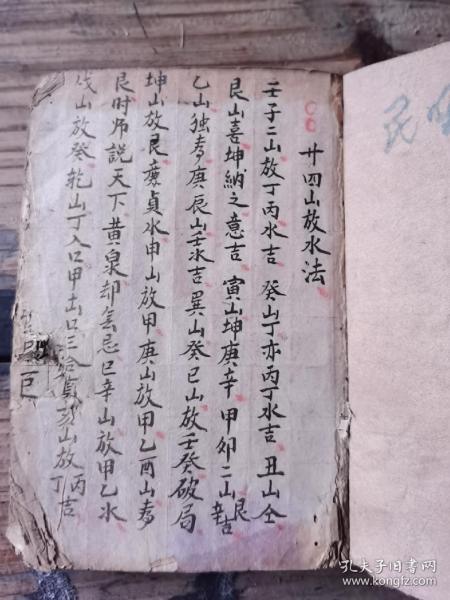 廿四山放水法
壬子二山放丁丙水吉 癸山丁亦丙丁水吉 丑山仝
艮山喜坤納之意吉 寅山坤庚辛 甲卯二山艮辛吉
乙山独专庚 辰山壬水吉 巽山癸 巳山放壬癸破局
坤山放艮廉貞水 申山放甲 庚山放甲乙 酉山专
艮时师説天下黄泉却無忌 巳辛山放甲乙水
戌山放癸 乾山丁入口甲出口三 亥山放丙丁吉
巨
民
孔夫子旧书网
www.kongfz.com